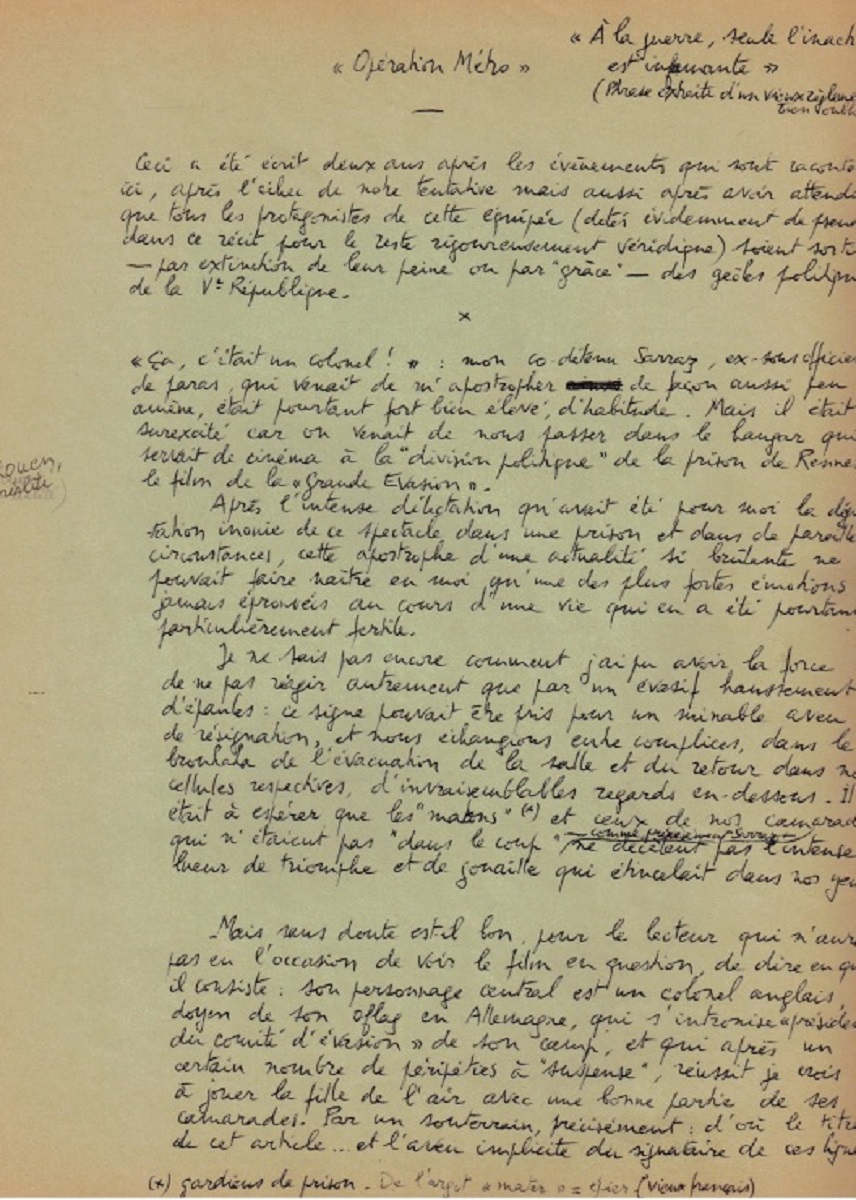 « À la guerre, seule l'inach
« Opération Métro » est infamante »
(Phrase extraite d'un vieux règleme
Ceci a été écrit deux ans après les évènements qui sont raconté
ici, après l'échec de notre tentative mais aussi après avoir attendu
que tous les protagonistes de cette équipée (dotés évidemment de pseud
dans ce récit pour le reste rigoureusement véridique) soient sorti
— par extinction de leur peine ou par "grâce" — des geôles politiqu
de la Ve République.
x
« Ça, c'était un colonel ! » : mon co-détenu Sarraz, ex-sous officier
de paras, qui venait de m'apostropher de façon aussi peu
amène, était pourtant fort bien élevé, d'habitude. Mais il était
surexcité car on venait de nous passer dans le hangar qui
servait de cinéma à la "division politique" de la prison de Rennes
le film de la « Grande Evasion ».
Après l'intense délectation qu'avait été pour moi la dég
tation inouïe de ce spectacle dans une prison et dans de pareille
circonstances, cette apostrophe d'une actualité si brûlante ne
pouvait faire naître en moi qu'une des plus fortes émotions
jamais éprouvées au cours d'une vie qui en a été pourtant
particulièrement fertile.
Je ne sais pas encore comment j'ai pu avoir la force
de ne pas réagir autrement que par un évasif haussement
d'épaules : ce signe pouvait être pris pour un minable aveu
de résignation, et nous échangions entre complices, dans le
brouhaha de l'évacuation de la salle et du retour dans no
cellules respectives, d'invraisemblables regards en-dessous. Il
était à espérer que les "matons" (x) et ceux de nos camarad
comme précisément Sarraz
qui n'étaient pas "dans le coup" ne décèlent pas l'intense
lueur de triomphe et de gouaille qui étincelait dans nos yeu
Mais sans doute est-il bon, pour le lecteur qui n'aura
pas eu l'occasion de voir le film en question, de dire en qu
il consiste : son personnage central est un colonel anglais,
doyen de son oflag en Allemagne, qui s'intronise « présiden
du comité d'évasion » de son camp, et qui après un
certain nombre de péripéties à "suspense", réussit je crois
à jouer la fille de l'air avec une bonne partie de ses
camarades. Par un souterrain, précisément : d'où le titre
de cet article ... et l'aveu implicite du signataire de ces ligne
(x) gardiens de prison. De l'argot « mater » = épier (vieux français)